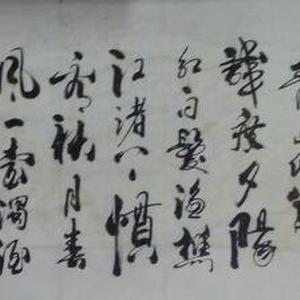 青山
幾度夕陽
紅白髮漁樵
江渚上慣
看秋月春
風一壺濁酒